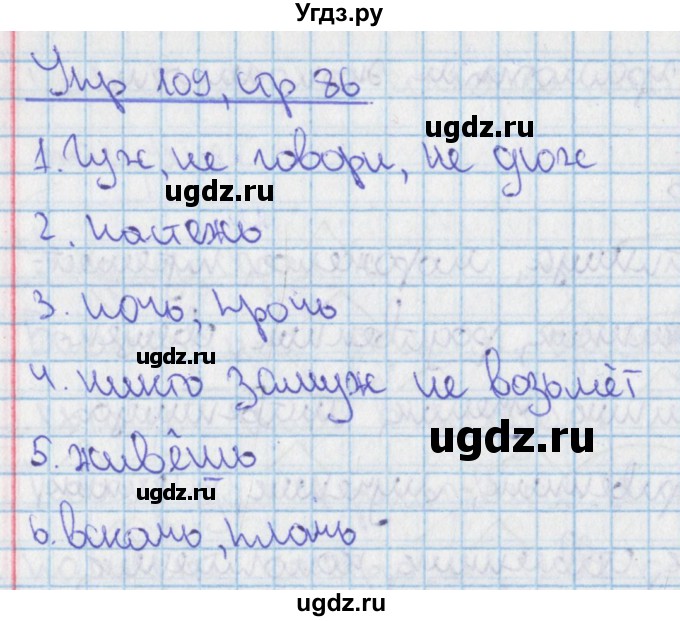 Угдз.ру
Упр 109, стр 86
ugdz.ru
1. Гуж, не говори, не дюж
ugdz.ru
2. настежь
3. ночь, прочь
ugdz.ru
4. никто замуж не возьмёт
ugdz.ru
5. живёшь
ugdz.ru
6. вскачь, плачь
ugdz.ru